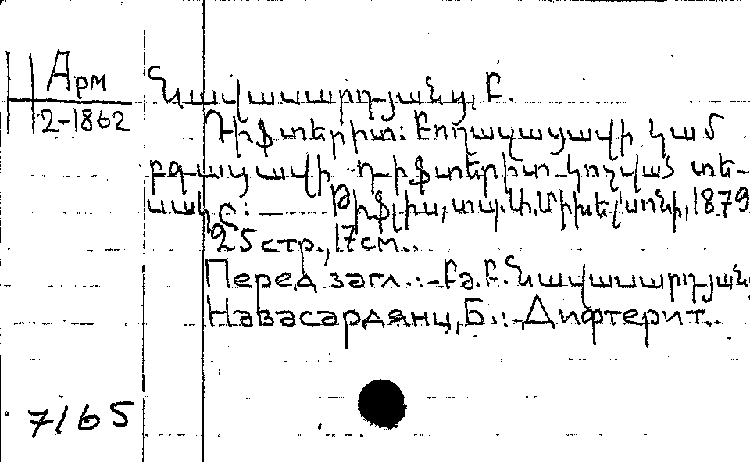 Арм
2-1862
Նավասարդյանց, Բ.
Դիֆտերիտ: Բողկացավի կամ
բզացավի դիֆտերիտ կոչված տե-
սակը: Թիֆլիս, տպ. Մ. Միխելսոնի, 1879
25 стр., 17 см.
Перед загл.: Բժ. Բ. Նավասարդյան,
Навасардянц, Б.: Дифтерит.
7165